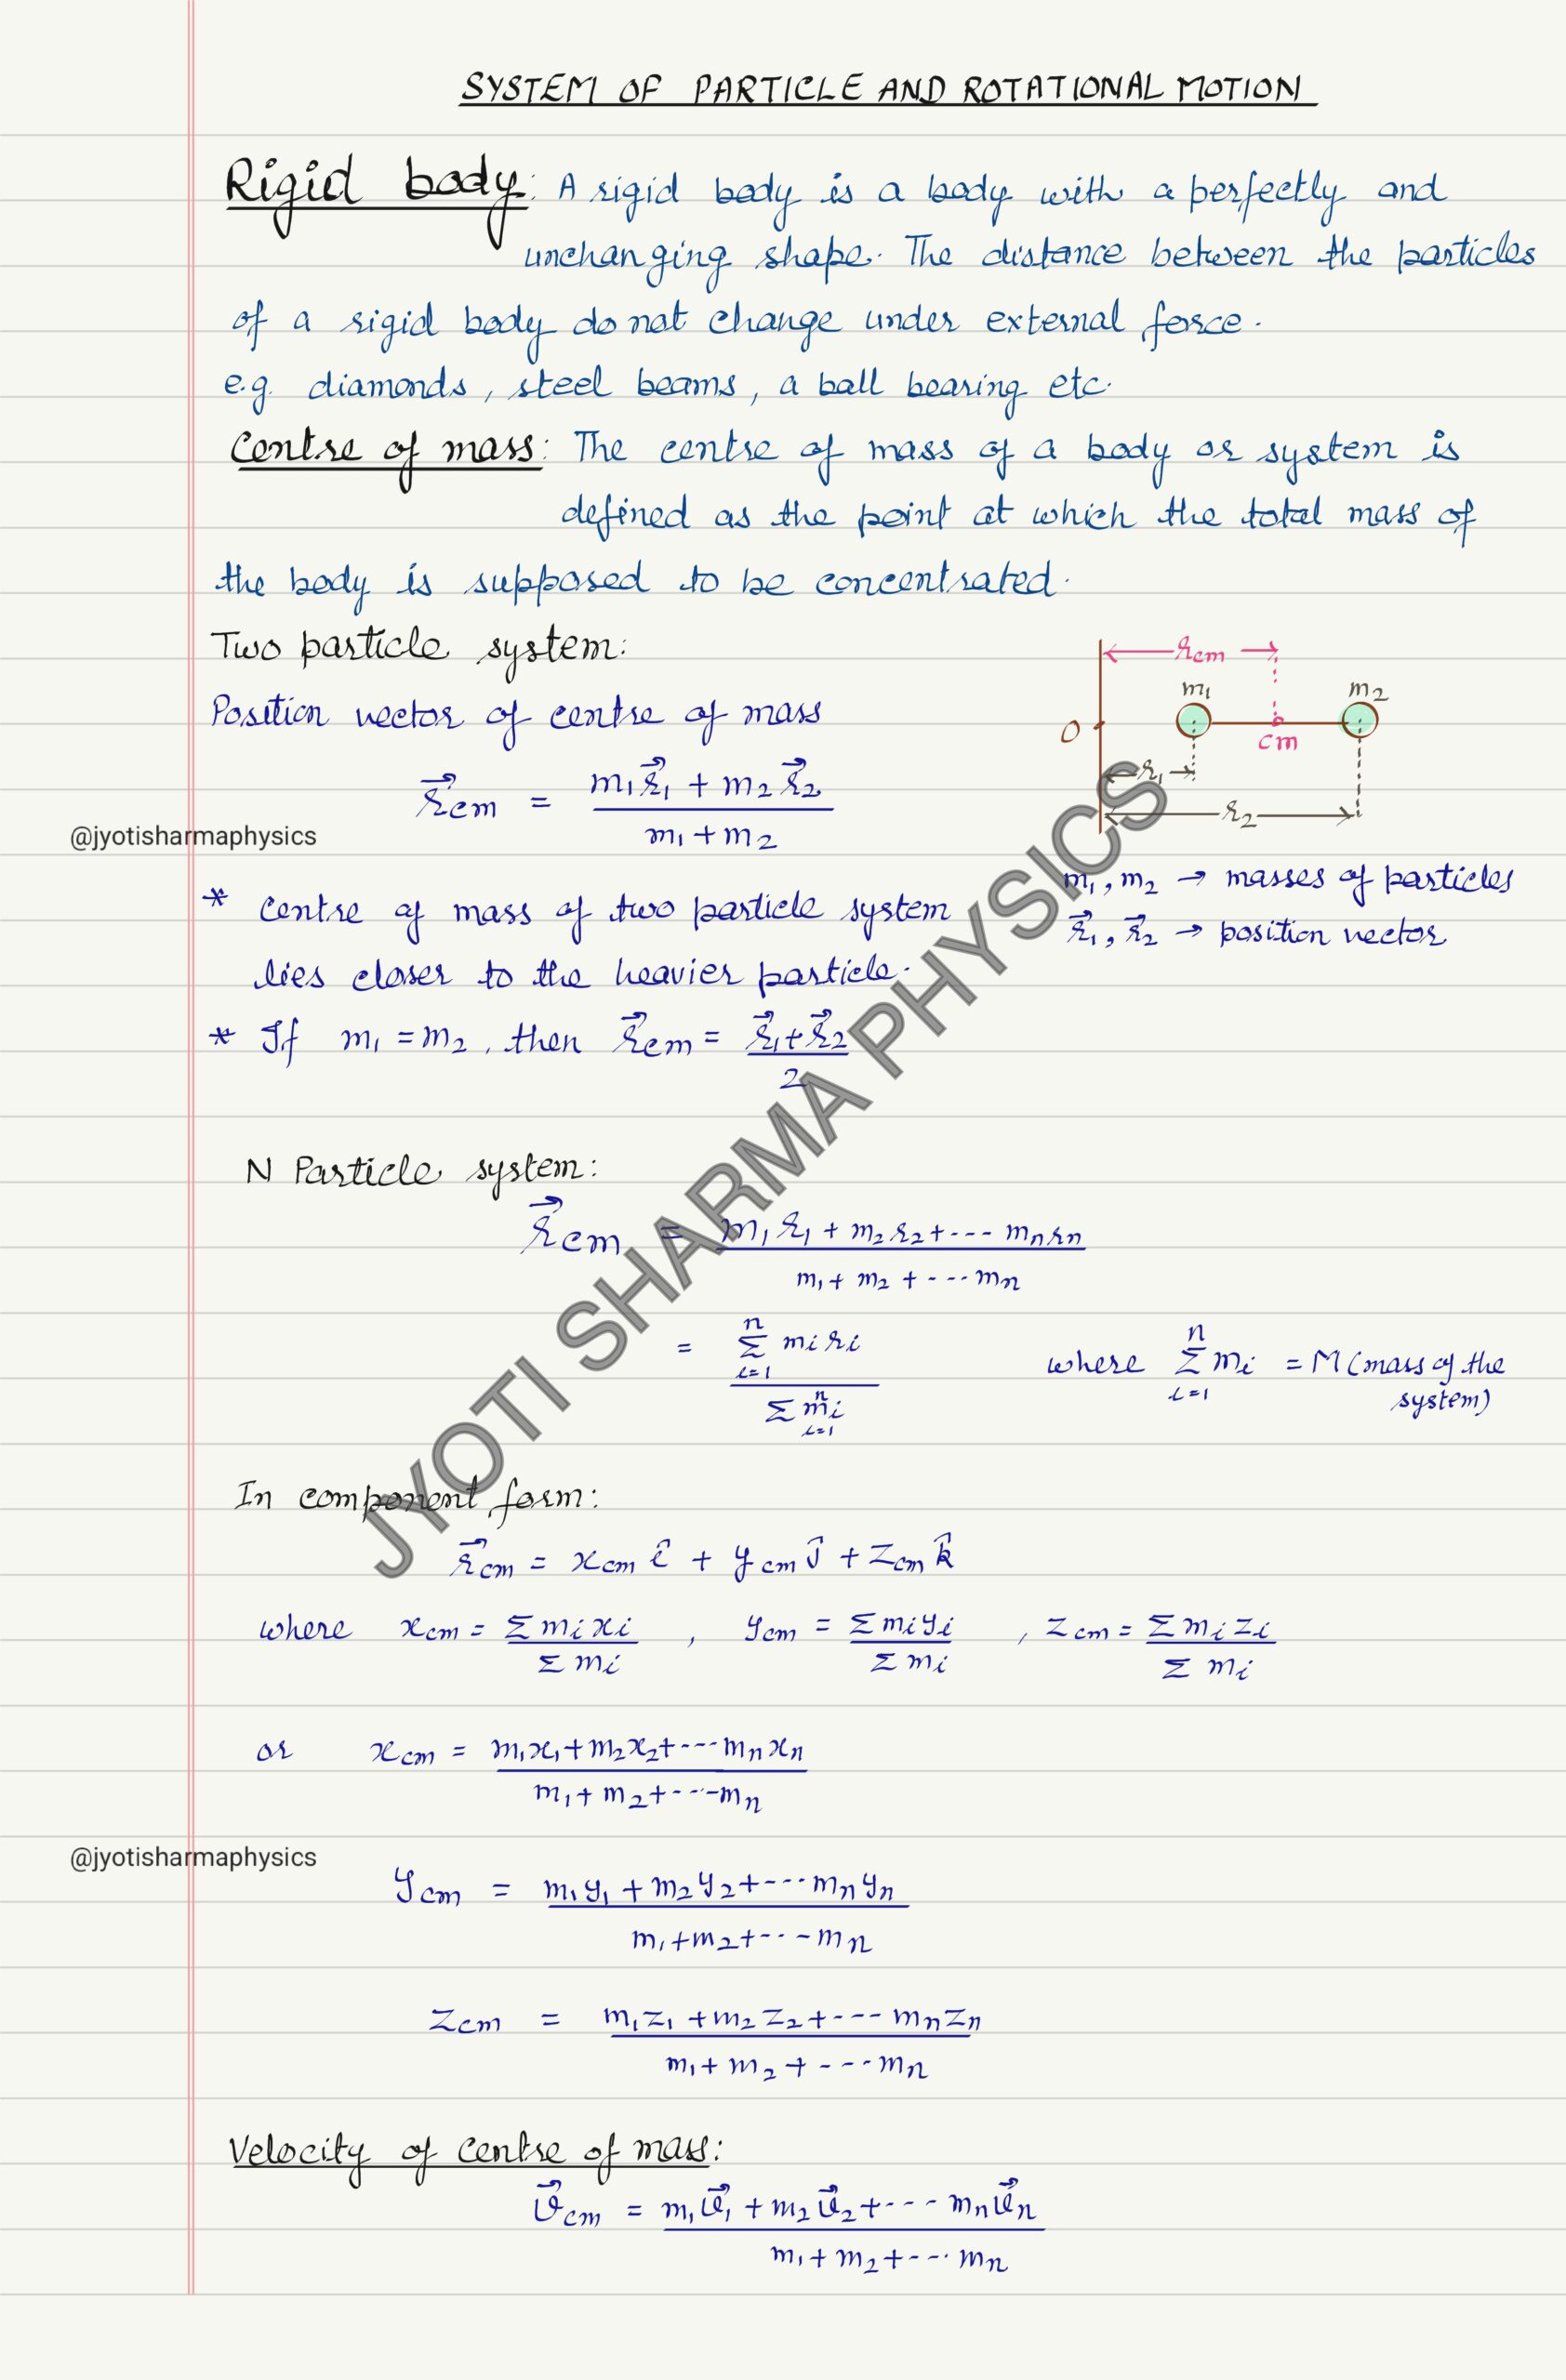 SYSTEM OF PARTICLE AND ROTATIONAL MOTION
Rigid body: A rigid body is a body with a perfectly and
unchanging shape. The distance between the particles
of a rigid body do not change under external force.
e.g. diamonds, steel beams, a ball bearing etc.
Centre of mass: The centre of mass of a body or system is
defined as the point at which the total mass of
the body is supposed to be concentrated.
Two particle system:
Position vector of centre of mass
r⃗cm = (m₁r⃗₁ + m₂r⃗₂) / (m₁ + m₂)
rcm
m₁ m₂
O
cm
r₁
r₂
@jyotisharmaphysics
m₁, m₂ → masses of particles
r⃗₁, r⃗₂ → position vector
* centre of mass of two particle system
lies closer to the heavier particle.
* If m₁ = m₂, then r⃗cm = (r⃗₁ + r⃗₂) / 2
JYOTI SHARMA PHYSICS
N Particle system:
r⃗cm = (m₁r₁ + m₂r₂ + --- mₙrₙ) / (m₁ + m₂ + --- mₙ)
= (Σⁿᵢ₌₁ mᵢrᵢ) / (Σⁿᵢ₌₁ mᵢ) where Σⁿᵢ₌₁ mᵢ = M (mass of the
system)
In component form:
r⃗cm = xcm î + ycm ĵ + zcm k̂
where xcm = Σmᵢxᵢ / Σmᵢ , ycm = Σmᵢyᵢ / Σmᵢ , zcm = Σmᵢzᵢ / Σmᵢ
or xcm = (m₁x₁ + m₂x₂ + --- mₙxₙ) / (m₁ + m₂ + --- mₙ)
@jyotisharmaphysics
ycm = (m₁y₁ + m₂y₂ + --- mₙyₙ) / (m₁ + m₂ + --- mₙ)
zcm = (m₁z₁ + m₂z₂ + --- mₙzₙ) / (m₁ + m₂ + --- mₙ)
Velocity of centre of mass:
v⃗cm = (m₁v⃗₁ + m₂v⃗₂ + --- mₙv⃗ₙ) / (m₁ + m₂ + --- mₙ)